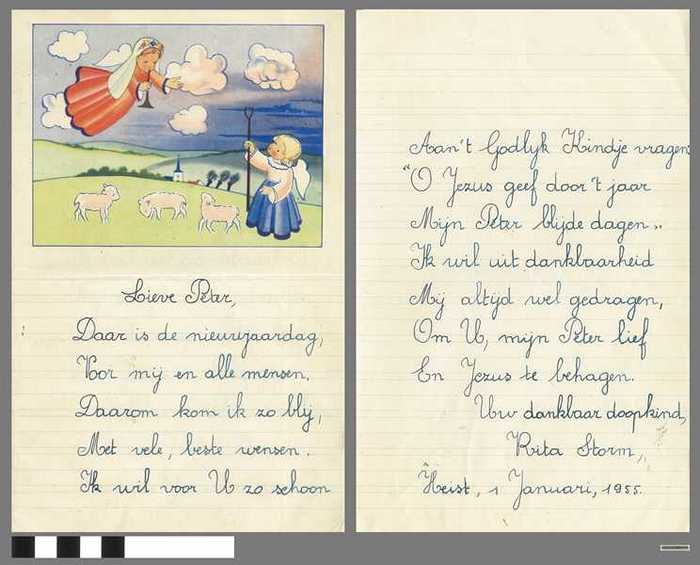 Lieve Peter,
Daar is de nieuwjaardag,
Voor mij en alle mensen.
Daarom kom ik zo blij,
Met vele, beste wensen.
Ik wil voor U zo schoon
Aan't Godlyk Kindje vragen:
"O Jezus geef door 't jaar
Mijn Peter blijde dagen„
Ik wil uit dankbaarheid
Mij altijd wel gedragen,
Om U, mijn Peter lief
En Jezus te behagen.
Uw dankbaar doopkind,
Rita Storm,
Heist, 1 Januari, 1955.